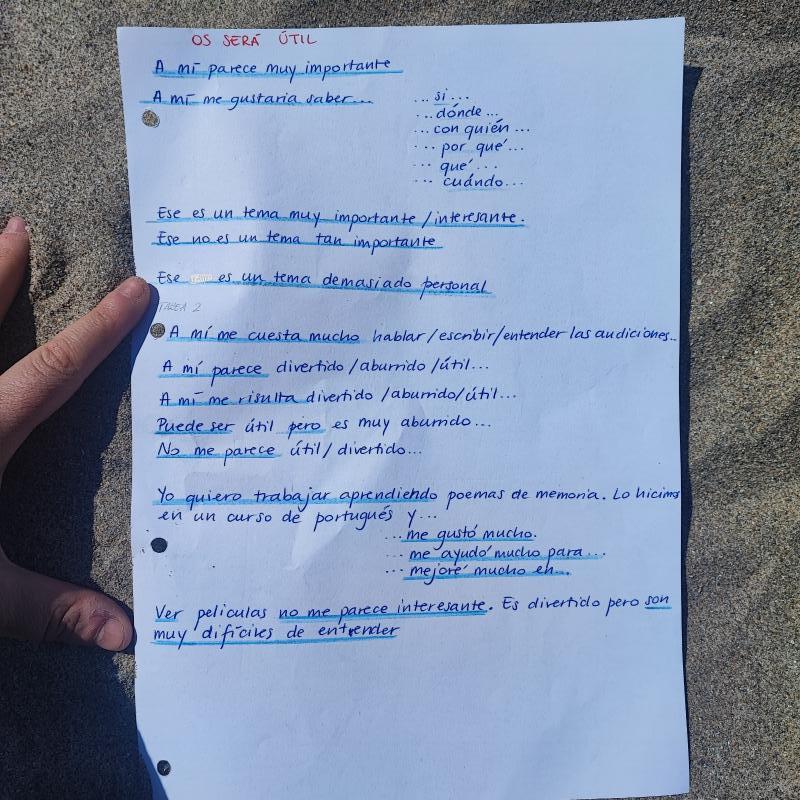 OS SERÁ ÚTIL
A mí parece muy importante
A mí me gustaria saber... ... si...
... dónde ...
... con quién ...
... por qué ...
... qué ...
... cuándo...
Ese es un tema muy importante / interesante.
Ese no es un tema tan importante
Ese es un tema demasiado personal
TAREA 2
A mí me cuesta mucho hablar/escribir/entender las audiciones..
A mí parece divertido / aburrido / útil...
A mí me risulta divertido / aburrido/útil...
Puede ser útil pero es muy aburrido...
No me parece útil/ divertido...
Yo quiero trabajar aprendiendo poemas de memoria. Lo hicimos
en un curso de portugués y...
... me gustó mucho.
... me ayudó mucho para...
... mejoré mucho en...
Ver películas no me parece interesante. Es divertido pero son
muy difíciles de entrender